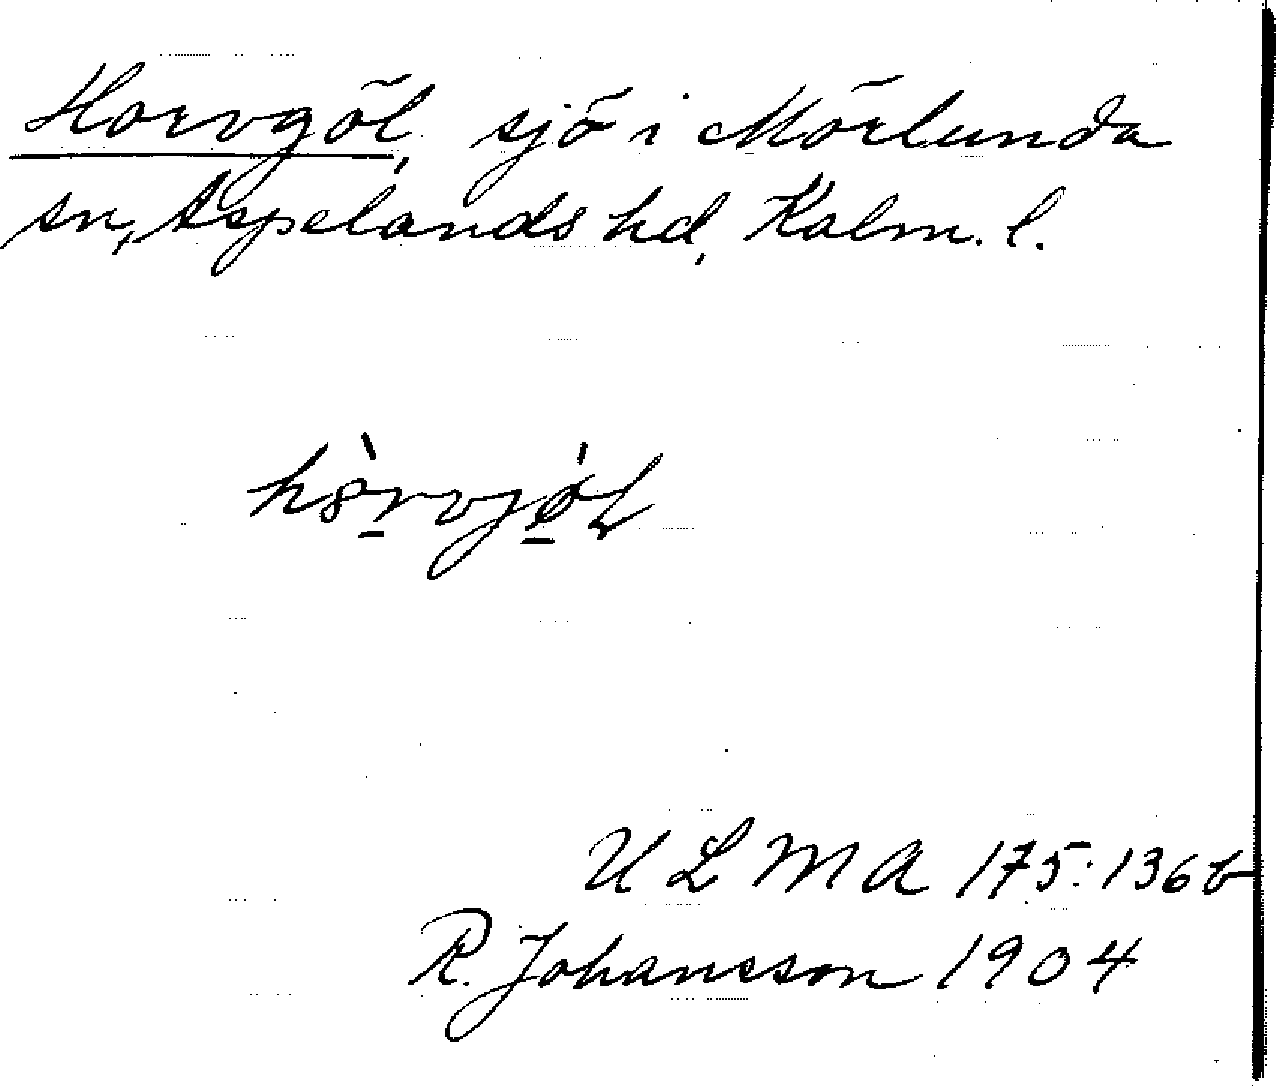 Horvgöl, sjö i Mörlunda
sn, Aspelands hd, Kalm. l.
ULMA 175:136b
R. Johansson 1904